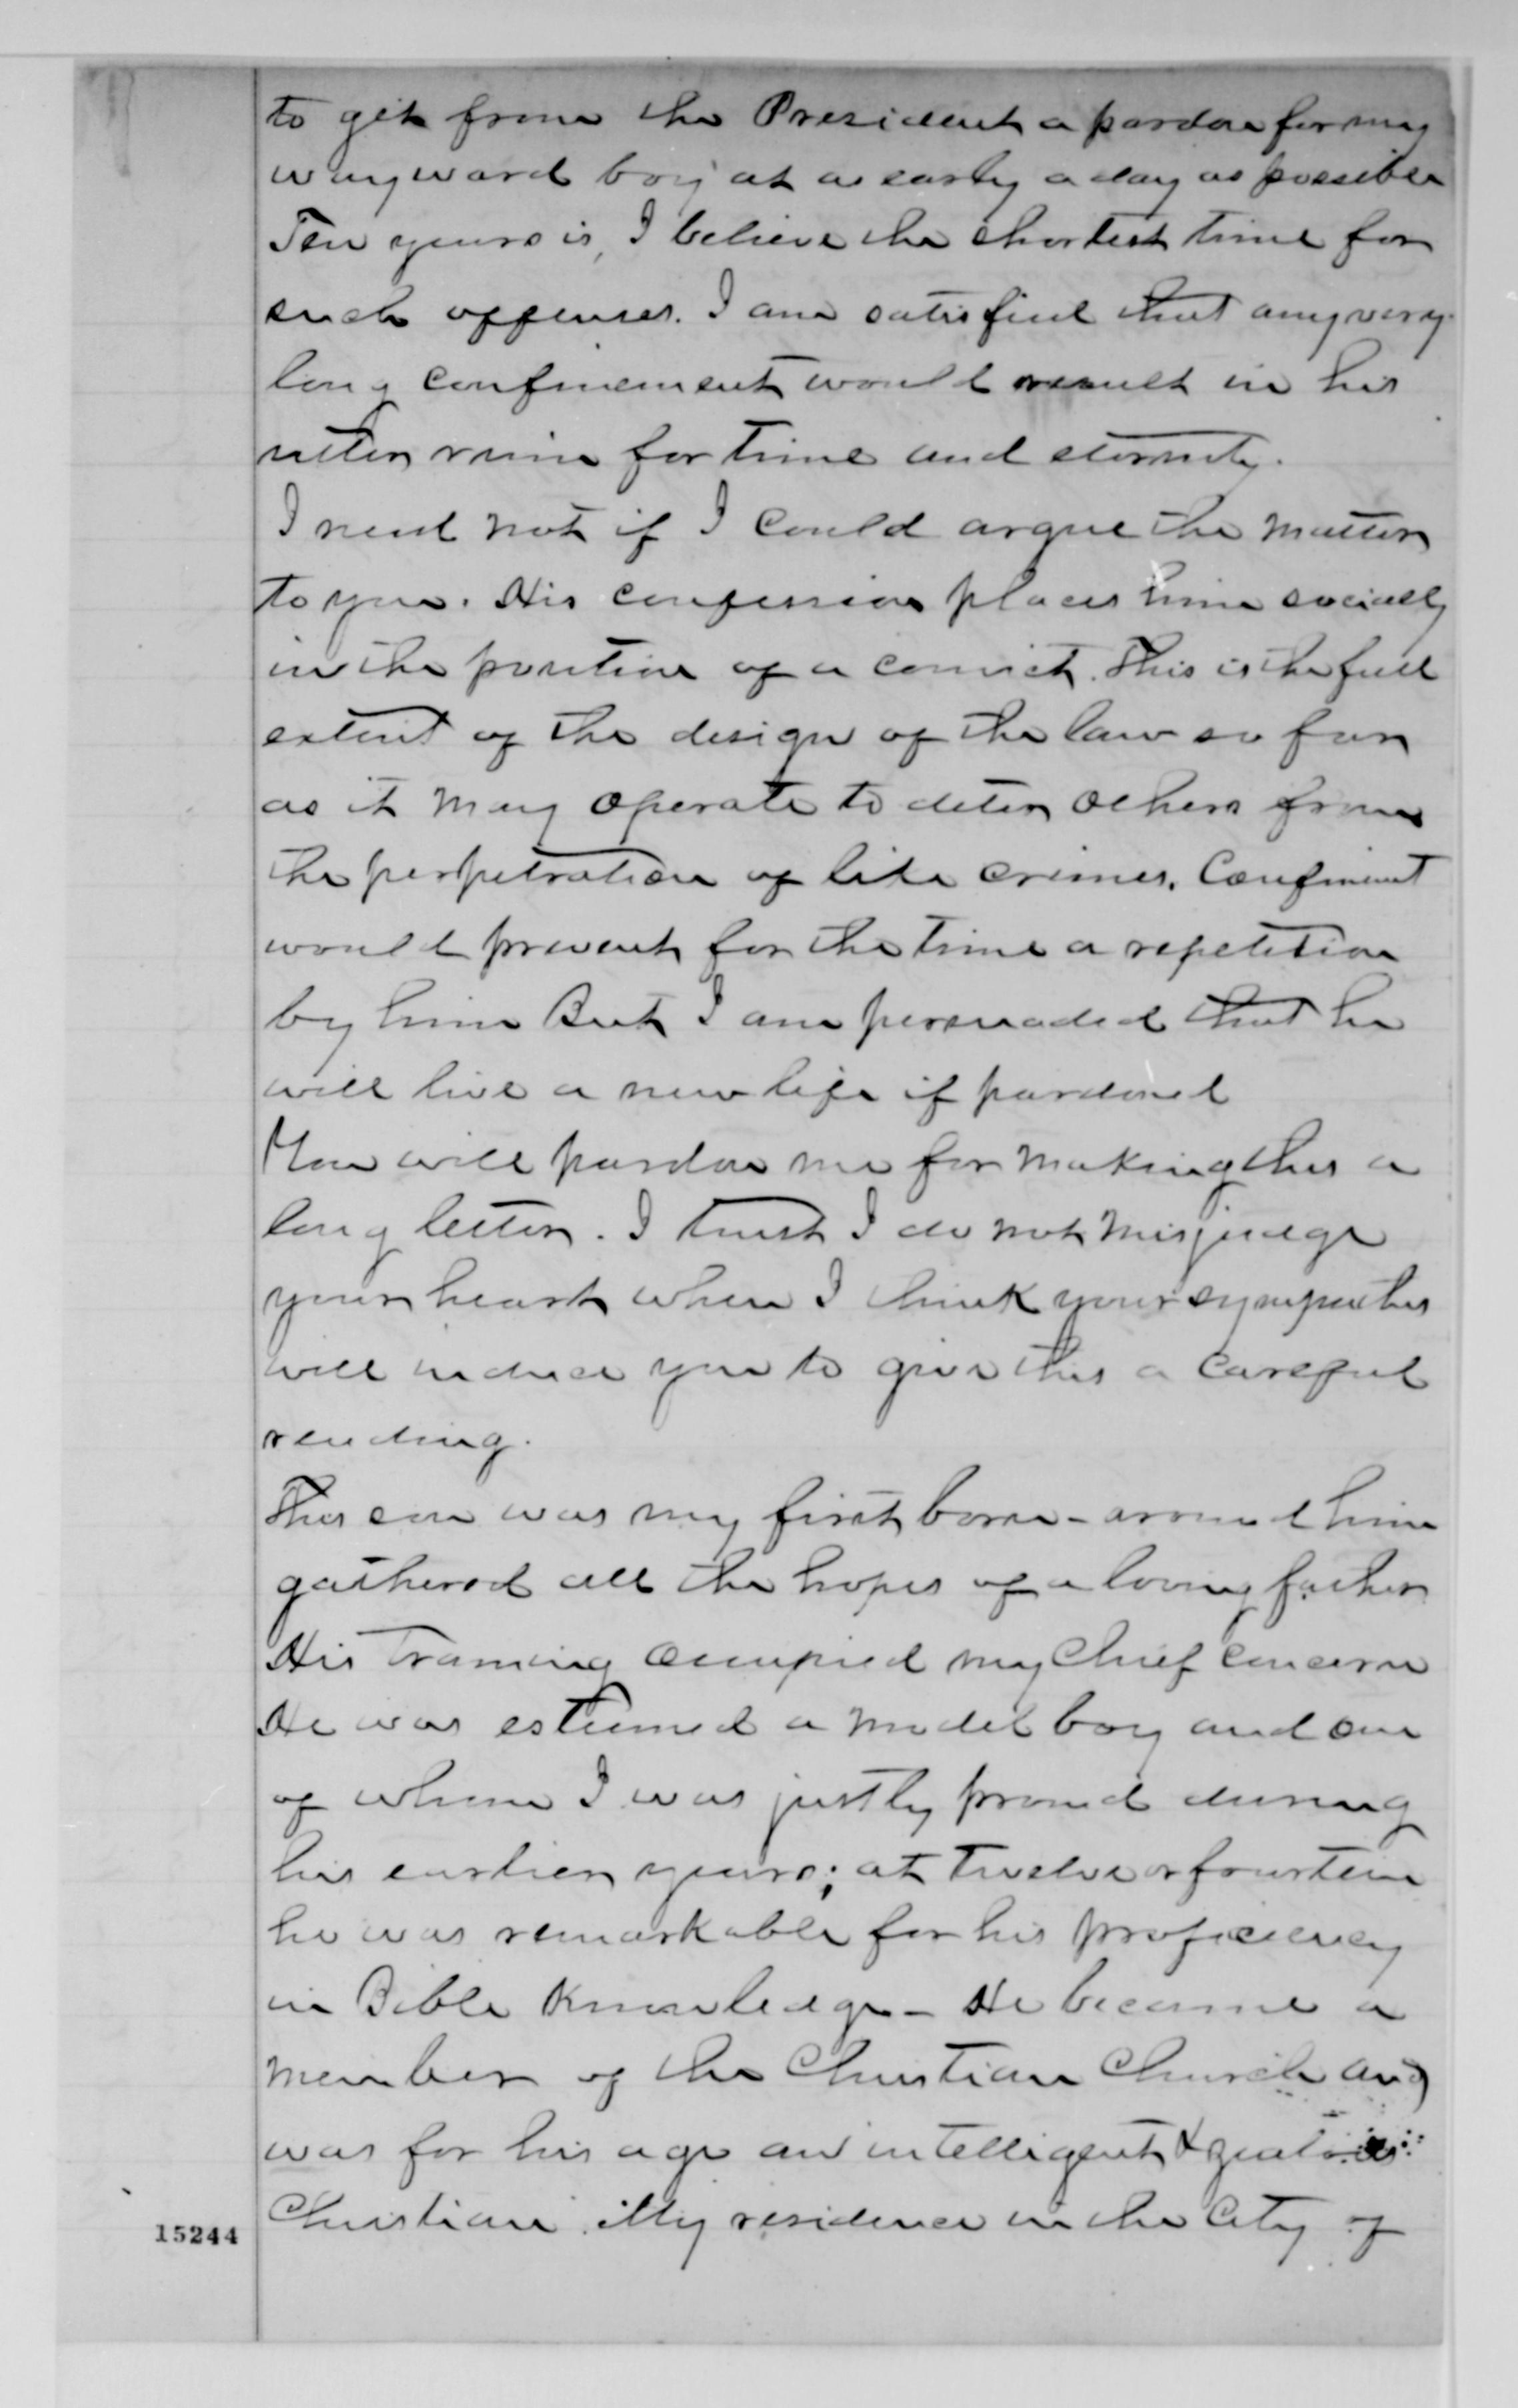 to get from the President a pardon for my
wayward boy at as early a day as possible
Ten years is, I believe the shortest time for
such offenses. I am satisfied that any very
long confinement would result in his
utter ruin for time and eternity.
I need not if I could argue the matter
to you. His confession places him socially
in the position of a convict. This is the full
extent of the design of the law so far
as it may operate to deter others from
the perpetration of like crimes. Confinement
would prevent for the time a repetition
by him But I am persuaded that he
will live a new life if pardoned
You will pardon me for making this a
long letter. I trust I do not misjudge
your heart when I think your sympathies
will induce you to give this a careful
reading.
This son was my first born - around him
gathered all the hopes of a loving father
His training occupied my chief concern
He was esteemed a model boy and one
of whom I was justly proud during
his earlier years; at twelve or fourteen
he was remarkable for his proficiency
in Bible Knowledge - He became a
member of the Christian Church and
was for his age an intelligent & zealous
Christian. My residence in the City of
15244